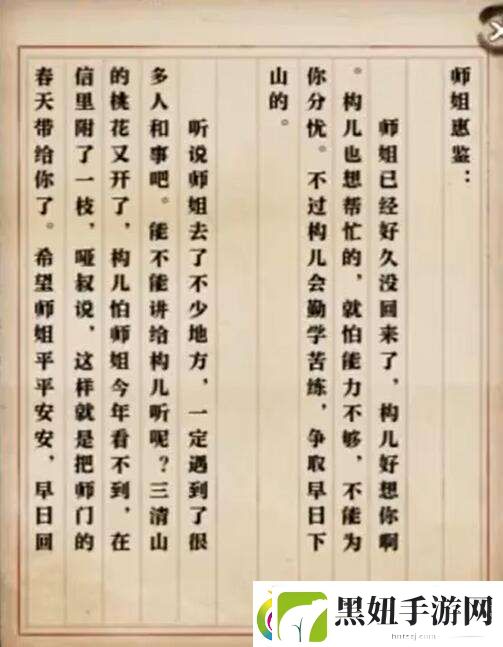 师姐惠鉴：
师姐已经好久没回来了，构儿好想你啊
。构儿也想帮忙的，就怕能力不够，不能为
你分忧。不过构儿会勤学苦练，争取早日下
山的。
听说师姐去了不少地方，一定遇到了很
多人和事吧。能不能讲给构儿听呢？三清山
的桃花又开了，构儿怕师姐今年看不到，在
信里附了一枝，哑叔说，这样就是把师门的
春天带给你了。希望师姐平平安安，早日回
黑妞手游网
hnzzcj.com